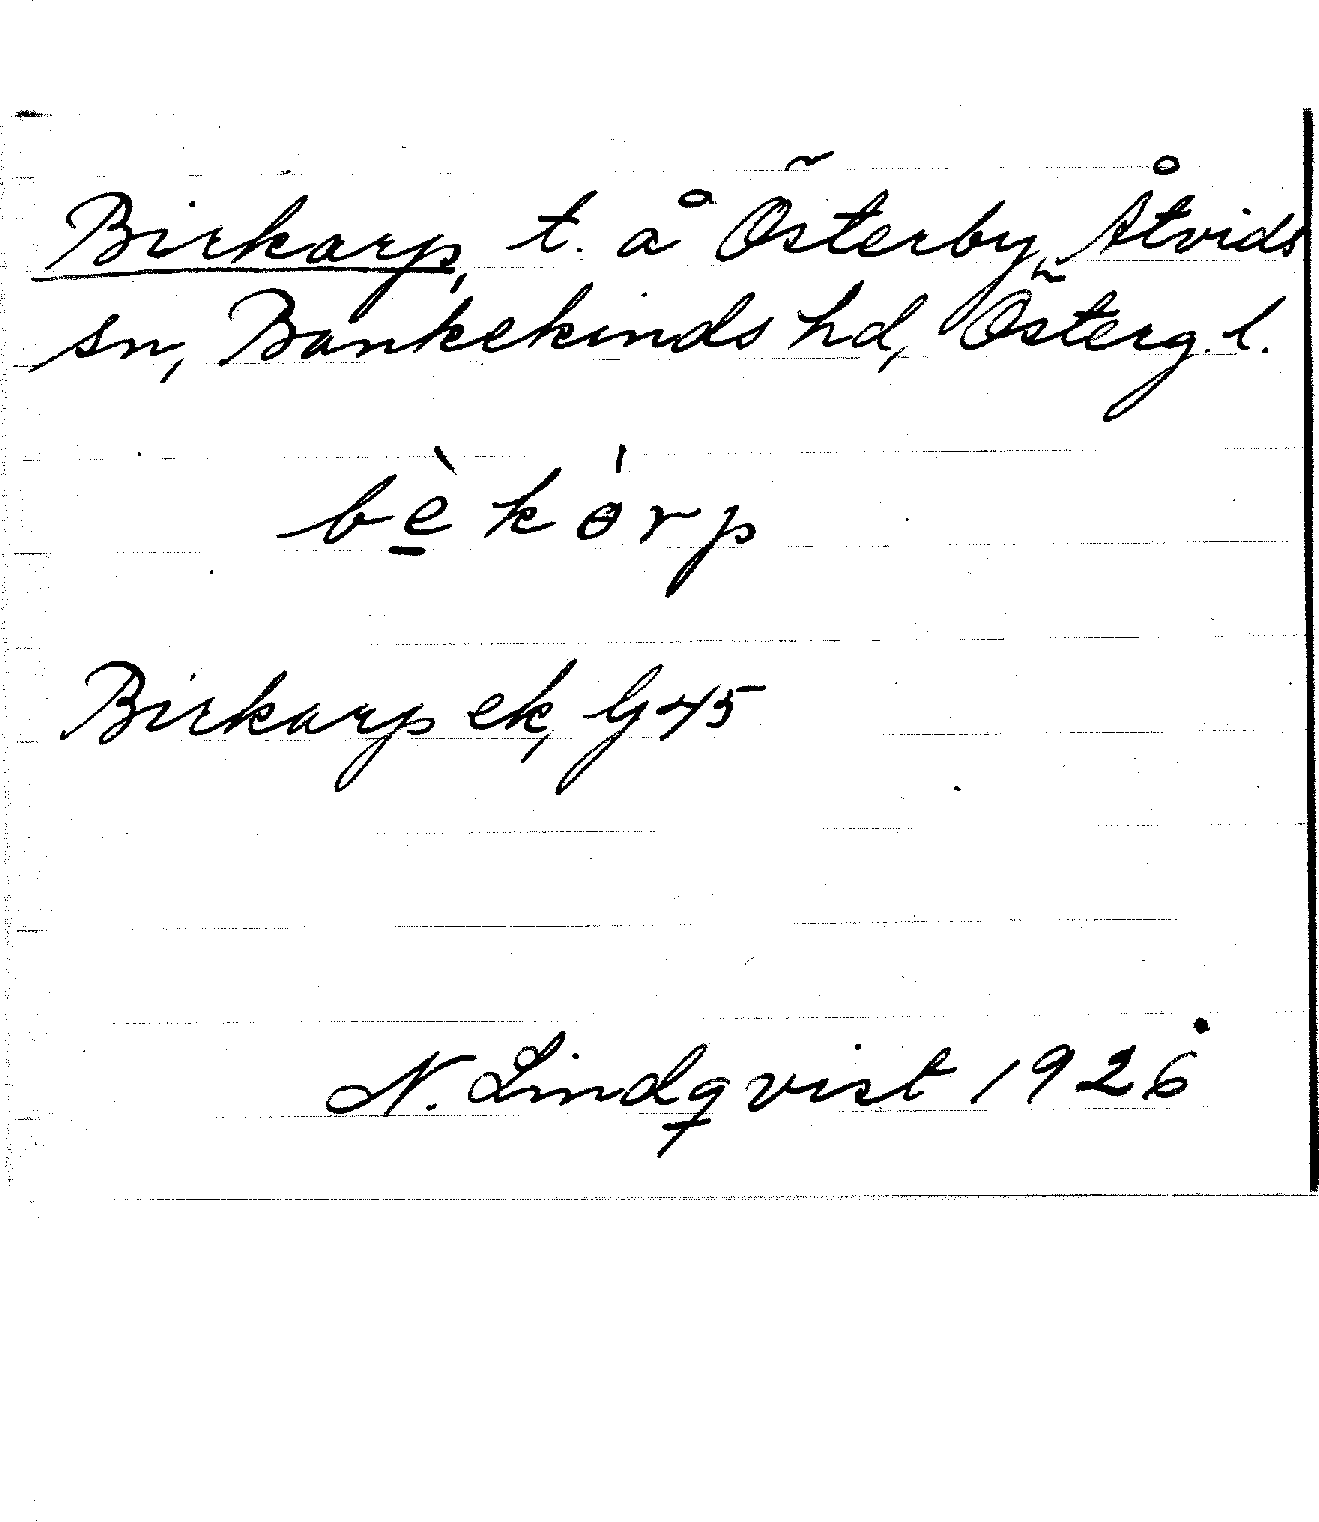 Birkarp, t. å Österby, Åtvids
sn, Bankekinds hd, Österg. l.
bè̱kȯrp
Birkarp ek, G 45
N. Lindqvist 1926